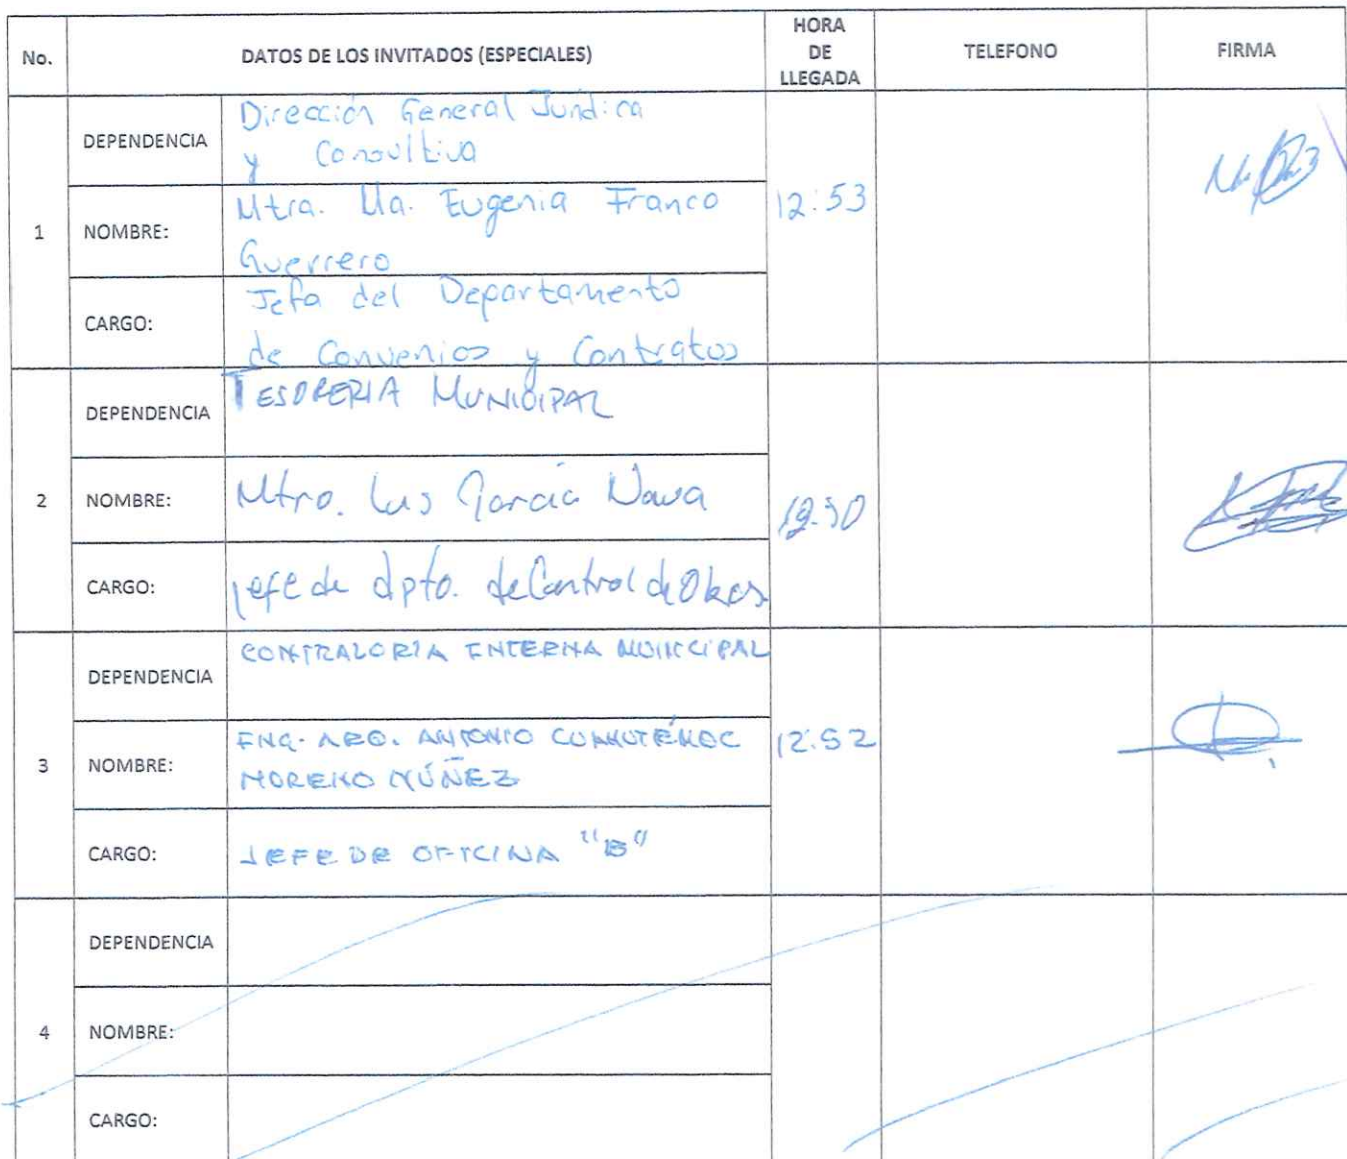 No. DATOS DE LOS INVITADOS (ESPECIALES) HORA DE LLEGADA TELEFONO FIRMA
1
DEPENDENCIA
Dirección General Jurídica
y Consultiva
NOMBRE:
Mtra. Ma. Eugenia Franco
Guerrero
12:53
CARGO:
Jefa del Departamento
de Convenios y Contratos
2
DEPENDENCIA
TESORERIA MUNICIPAL
NOMBRE:
Mtro. Luis García Nava
CARGO:
Jefe de dpto. de Control de Obras
3
DEPENDENCIA
CONTRALORIA INTERNA MUNICIPAL
NOMBRE:
ING. ARQ. ANTONIO CUAHUTÉMOC
MORENO NÚÑEZ
12:52
CARGO:
JEFE DE OFICINA "B"
4
DEPENDENCIA
NOMBRE:
CARGO: